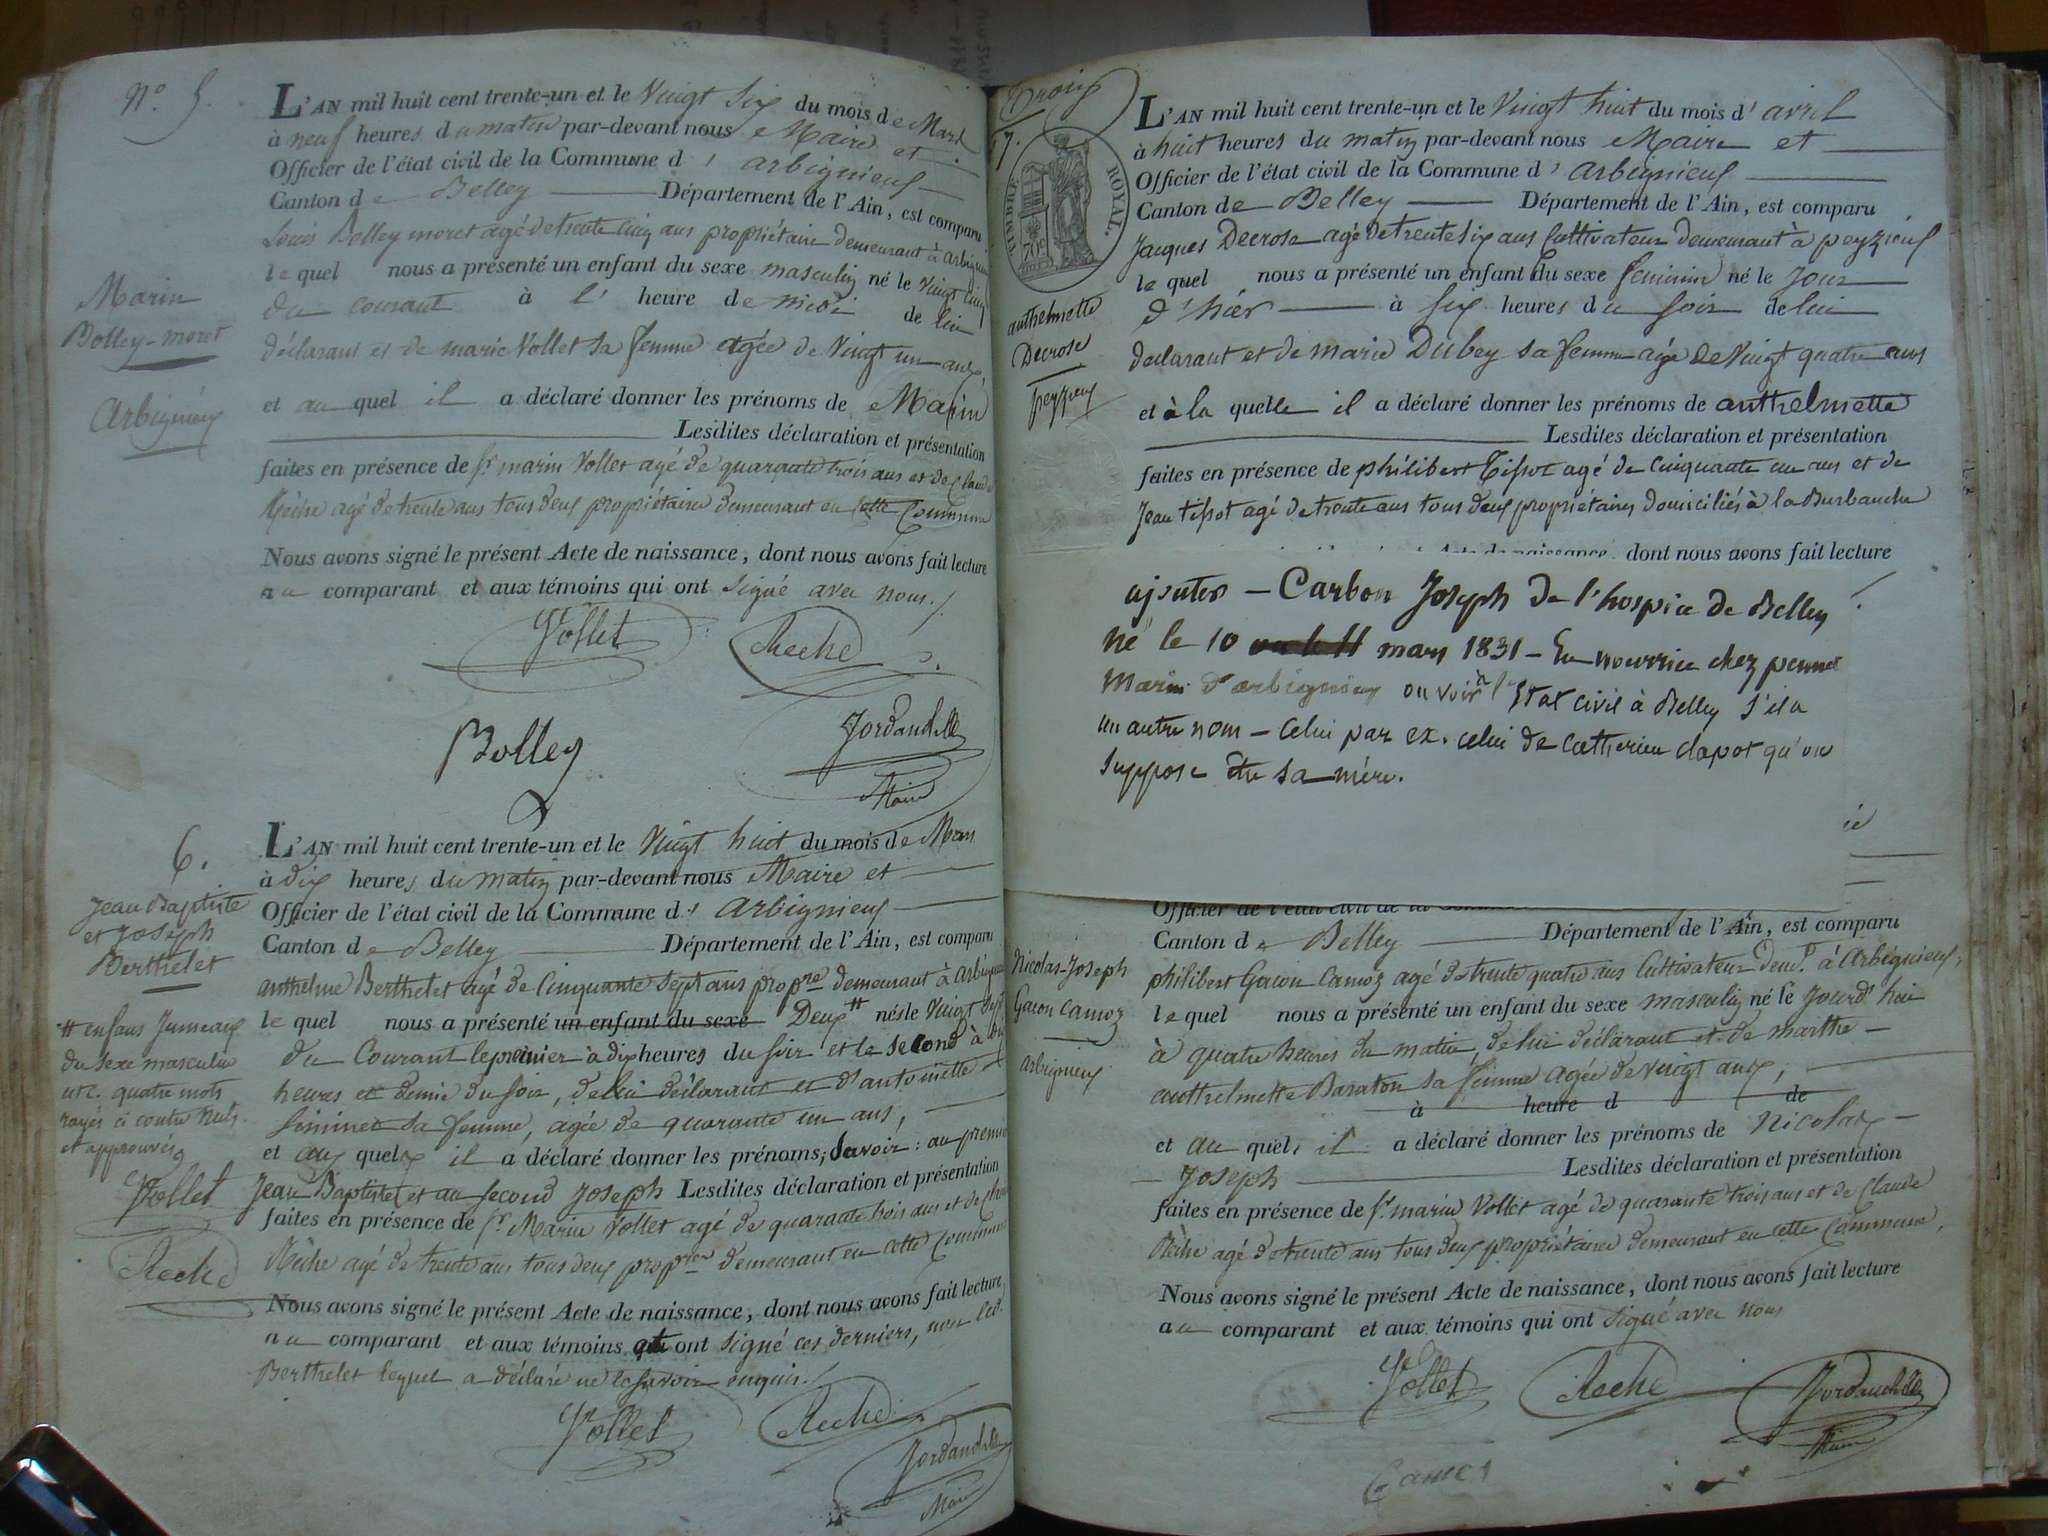 N.° 5.
L'AN mil huit cent trente-un et le Vingt Six du mois de Mars
à neuf heures du matin par-devant nous Maire et
Officier de l'état civil de la Commune d' arbignieux
Canton de Belley Département de l'Ain, est comparu
Louis Bolley moret agé de trente cinq ans propriétaire demeurant à arbignieux
le quel nous a présenté un enfant du sexe masculin né le vingt cinq
du courant à l' heure de midi de lui
déclarant et de marie Vollet sa femme agée de Vingt un ans,
et au quel il a déclaré donner les prénoms de Marin
Lesdites déclaration et présentation
faites en présence de Sr. marin Vollet agé de quarante trois ans et de Claude
Rèche agé de trente ans tous deux propriétaires demeurant en cette Commune
Nous avons signé le présent Acte de naissance, dont nous avons fait lecture
au comparant et aux témoins qui ont signé avec nous./.
Marin
Bolley-moret
Arbignieux
Vollet
Reche
Bolley
Maire
6.
Jean Baptiste
et Joseph
Berthelet
# enfans Jumeaux
du sexe masculin
etc. quatre mots
rayés ci contre nuls
et approuvés
Vollet
Reche
L'AN mil huit cent trente-un et le Vingt huit du mois de Mars
à dix heures du matin par-devant nous Maire et
Officier de l'état civil de la Commune d' arbignieux
Canton de Belley Département de l'Ain, est comparu
anthelme Berthelet agé de Cinquante Sept ans propre. demeurant à arbignieux
le quel nous a présenté un enfant du sexe Deux # nés le Vingt Sept
du Courant le premier à dix heures du soir et le second à
heures et demie du soir, de lui déclarant et d'antoinette
sa femme, agée de quarante un ans,
et aux quels il a déclaré donner les prénoms; Savoir: au premier
Jean Baptiste et au second Joseph Lesdites déclaration et présentation
faites en présence de Sr. Marin Vollet agé de quarante trois ans et de Claude
Rèche agé de trente ans tous deux propres. demeurant en cette Commune
Nous avons signé le présent Acte de naissance, dont nous avons fait lecture
au comparant et aux témoins ont signé ces derniers, non led.
Berthelet lequel a déclaré ne le savoir enquis./
Vollet
Reche
Maire
7.
TIMBRE ROYAL.
anthelmette
Decrose
peyzieux
L'AN mil huit cent trente-un et le Vingt huit du mois d' avril
à huit heures du matin par-devant nous Maire et
Officier de l'état civil de la Commune d' arbignieux
Canton de Belley Département de l'Ain, est comparu
Jacques Decrose agé de trente six ans Cultivateur demeurant à peyzieux
le quel nous a présenté un enfant du sexe feminin né le jour
d'hier à six heures du soir de lui
declarant et de marie Dubey sa femme agée de Vingt quatre ans
et à la quelle il a déclaré donner les prénoms de anthelmette
Lesdites déclaration et présentation
faites en présence de philibert Tissot agé de cinquante un ans et de
Jean tissot agé de trente ans tous deux propriétaires domiciliés à la Burbanche
dont nous avons fait lecture
ajouter – Carbon Joseph de l'hospice de Belley
né le 10 ou le 11 mars 1831 – En nourrice chez
Marin d'arbignieux ou voir à l'Etat civil à Belley s'il a
un autre nom – celui par ex. celui de catherine clapot qu'on
suppose être sa mère.
Officier de l'état civil de la Commune
Canton de Belley Département de l'Ain, est comparu
philibert Gacon Camoz agé de trente quatre ans Cultivateur demt. à Arbignieux,
le quel nous a présenté un enfant du sexe masculin né le jourd'hui
à quatre heures du matin, de lui déclarant et de marthe
anthelmette Baraton sa femme agée de vingt ans,
à heure d de
et au quel, il a déclaré donner les prénoms de Nicolas
Joseph Lesdites déclaration et présentation
faites en présence de Sr. marin Vollet agé de quarante trois ans et de Claude
Rèche agé de trente ans tous deux propriétaires demeurant en cette Commune,
Nous avons signé le présent Acte de naissance, dont nous avons fait lecture
au comparant et aux témoins qui ont signé avec nous
Nicolas-Joseph
Gacon Camoz
arbignieux
Vollet
Reche
Maire